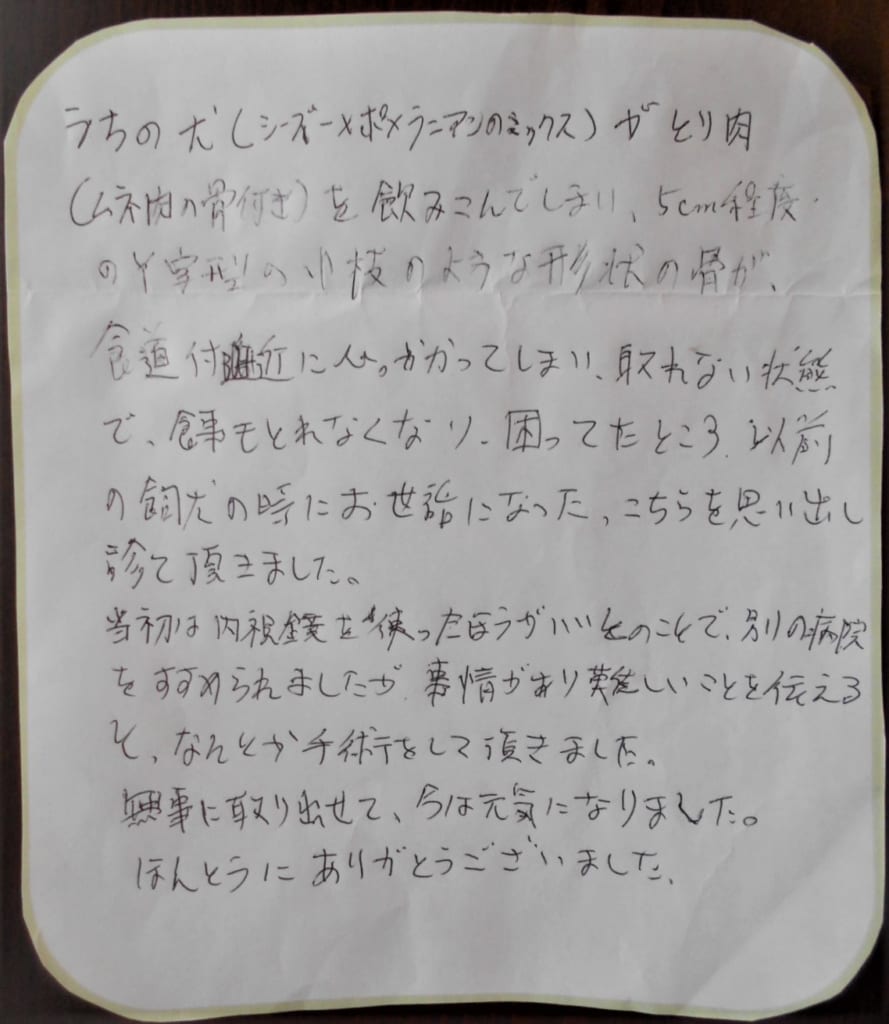 うちの犬(シーズー×ポメラニアンのミックス)がとり肉
(ムネ肉の骨付き)を飲みこんでしまい、5cm程度
のY字型の小枝のような形状の骨が、
食道付近にひっかかってしまい、取れない状態
で、食事もとれなくなり、困ってたところ、以前
の飼犬の時にお世話になった、こちらを思い出し
診て頂きました。
当初は内視鏡を使ったほうがいいとのことで、別の病院
をすすめられましたが、事情があり難しいことを伝える
と、なんとか手術をして頂きました。
無事に取り出せて、今は元気になりました。
ほんとうにありがとうございました、